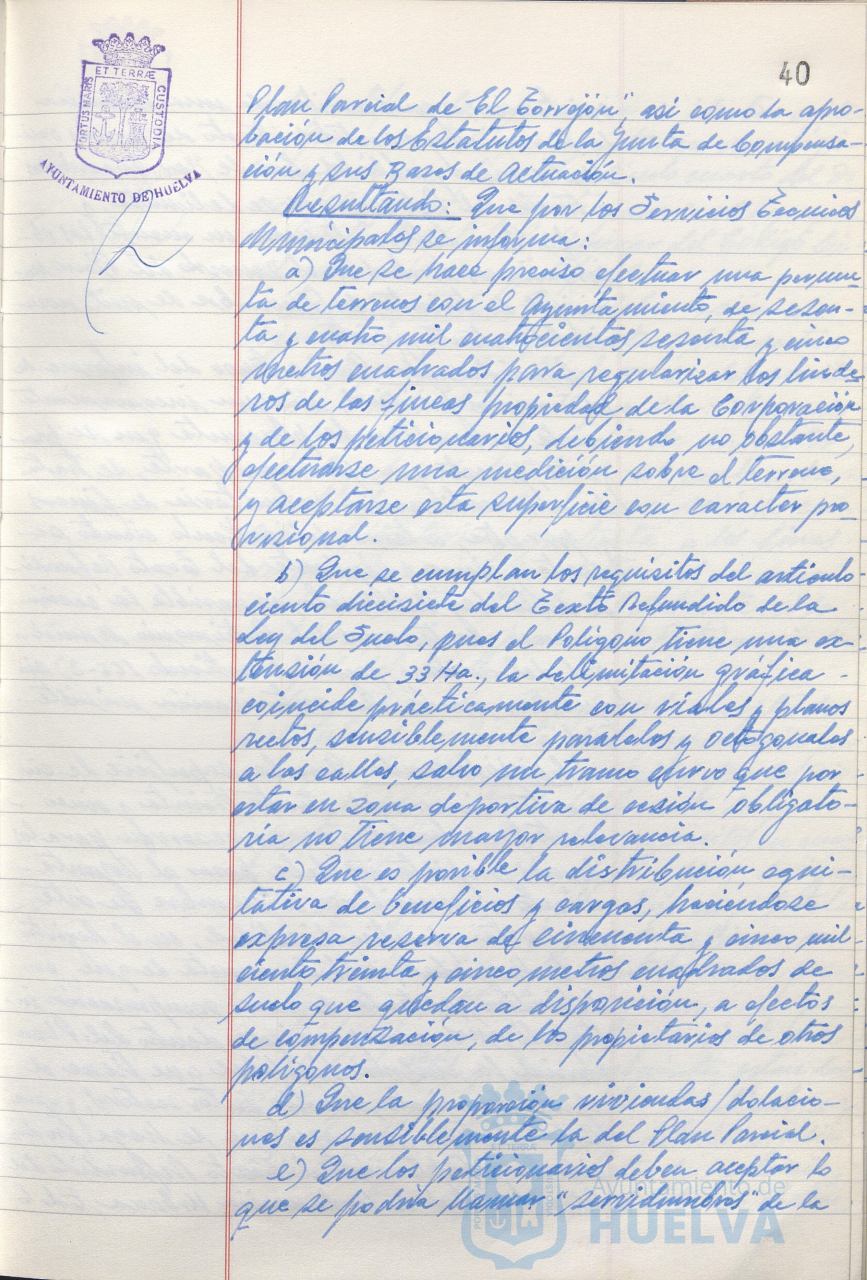 40
ET TERRÆ
PORTUS MARIS
CUSTODIA
AYUNTAMIENTO DE HUELVA
Plan Parcial de El Torrejón", asi como la apro-
bación de los Estatutos de la Junta de Compensa-
ción y sus Bases de Actuación.
Resultando: Que por los Servicios Tecnicos
Municipales se informa:
a) Que se hace preciso efectuar una permu-
ta de terrenos con el Ayuntamiento, de sesen-
ta y cuatro mil cuatrocientos sesenta y cinco
metros cuadrados para regularizar los linde-
ros de las fincas propiedad de la Corporación
y de los peticionarios, debiendo no obstante,
efectuarse una medición sobre el terreno,
y aceptarse esta superficie con caracter pro-
visional.
b) Que se cumplan los requisitos del articulo
ciento diecisiete del Texto Refundido de la
Ley del Suelo, pues el Poligono tiene una ex-
tensión de 33 Ha., la delimitación gráfica -
coincide prácticamente con viales y planos
rectos, sensiblemente paralelos y octogonales
a las calles, salvo un tramo curvo que por
estar en zona deportiva de cesión obligato-
ria no tiene mayor relevancia.
c) Que es posible la distribución equi-
tativa de beneficios y cargas, haciéndose
expresa reserva de cincuenta y cinco mil
ciento treinta y cinco metros cuadrados de
suelo que quedan a disposición, a efectos
de compensación, de los propietarios de otros
poligonos.
d) Que la proporción viviendas/dotacio-
nes es sensiblemente la del Plan Parcial.
e) Que los peticionarios deben aceptar lo
que se podria llamar "servidumbres" de la
Ayuntamiento de
HUELVA